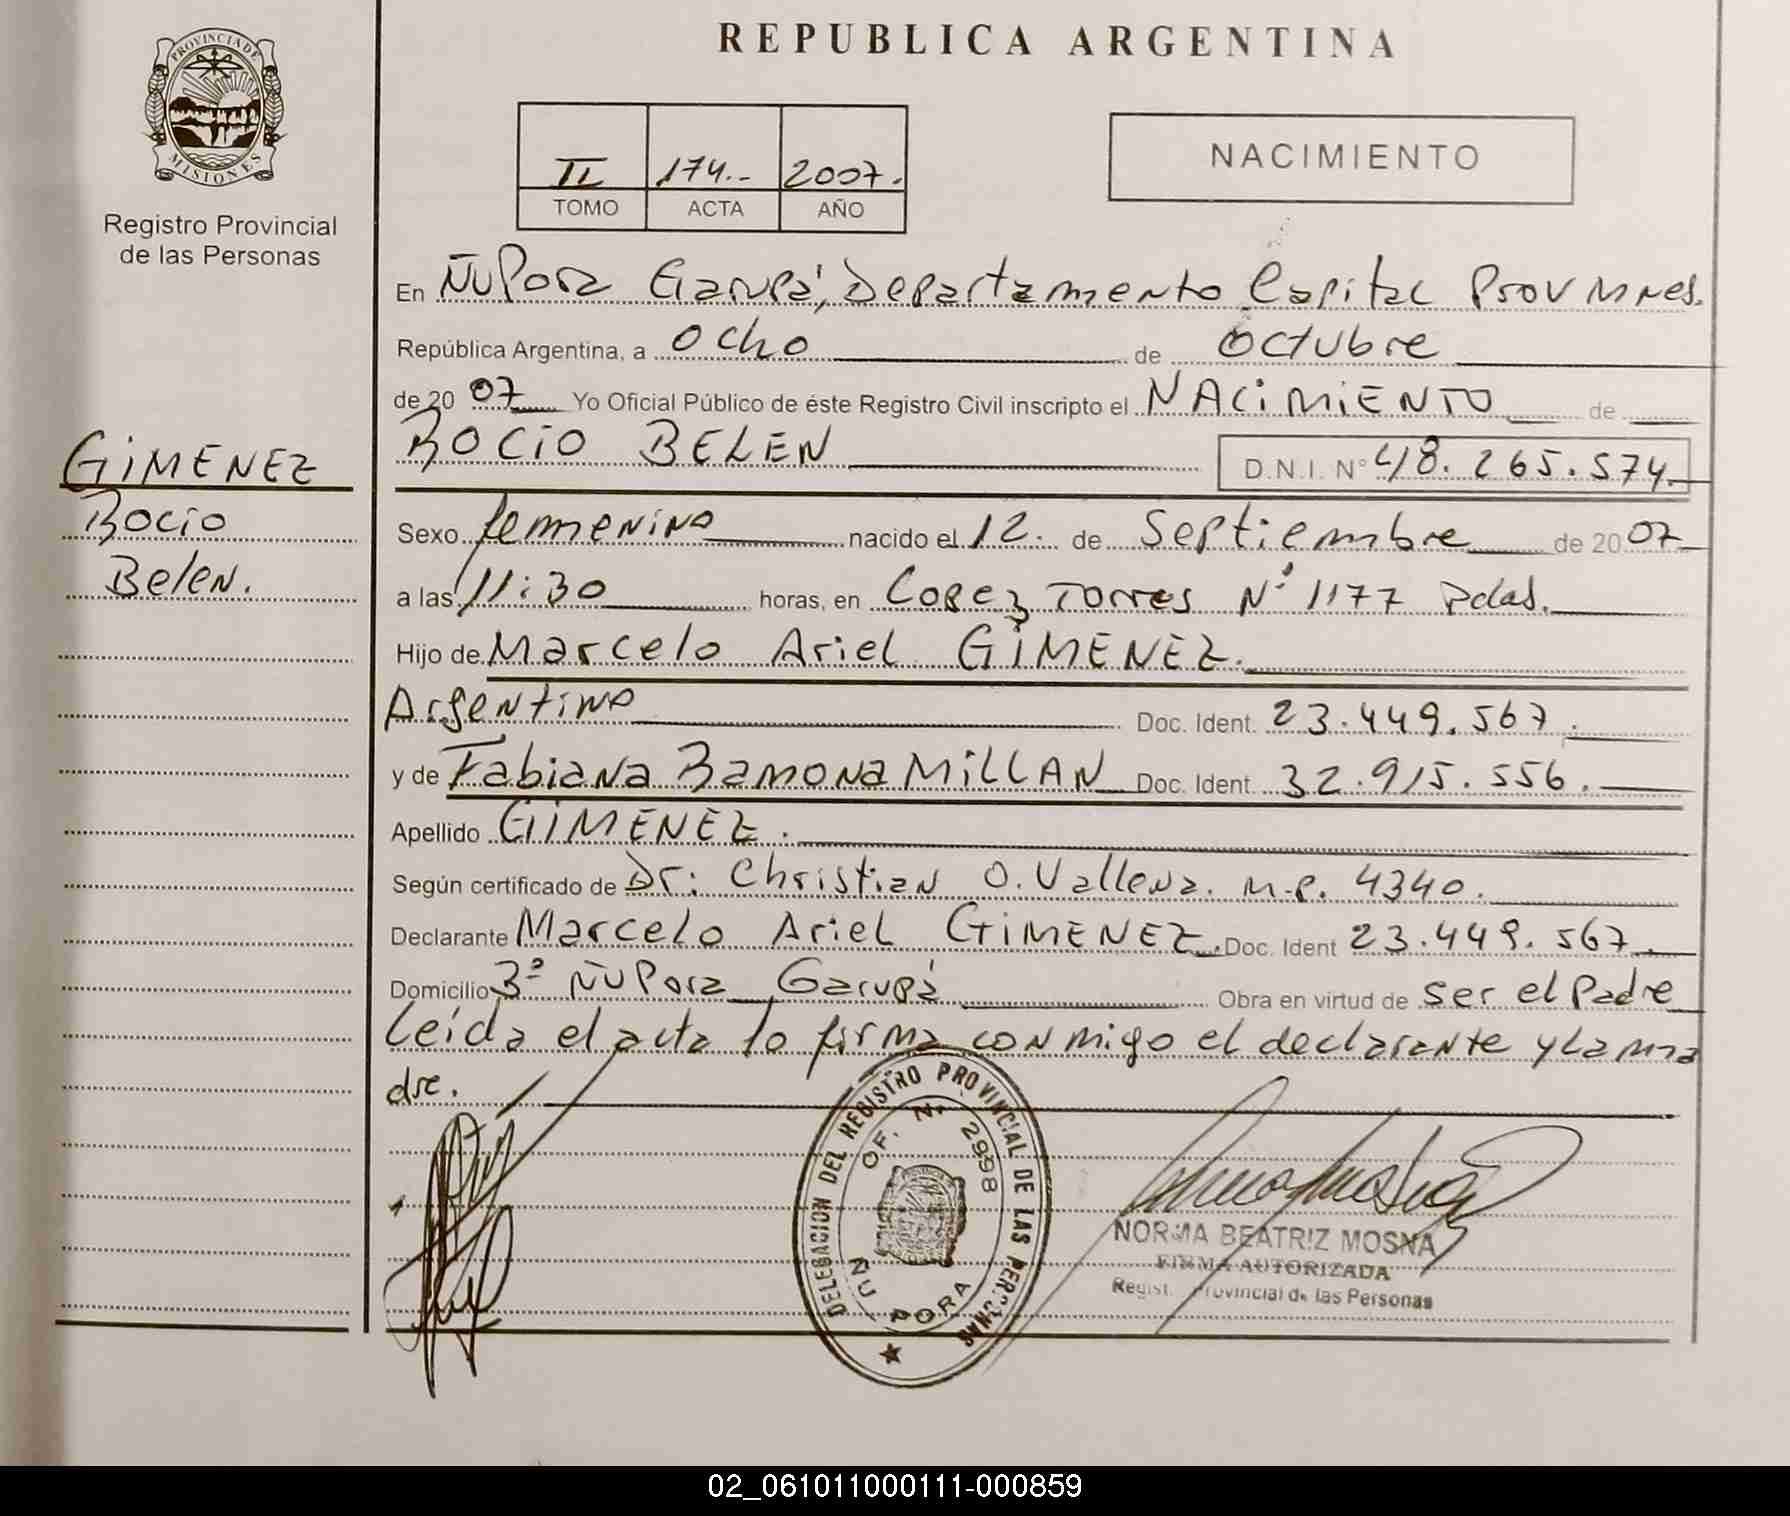 REPUBLICA ARGENTINA
PROVINCIA DE
MISIONES
Registro Provincial
de las Personas
II 174.- 2007.
TOMO ACTA AÑO
NACIMIENTO
En Ñu Pora Garupá, Departamento Capital Prov Mnes.
República Argentina, a ocho de octubre
de 2007 Yo Oficial Público de éste Registro Civil inscripto el NACIMIENTO de
ROCIO BELEN D.N.I. Nº 48.265.574.
GIMENEZ
Rocio
Belen.
Sexo femenino nacido el 12. de Septiembre de 2007
a las 11:30 horas, en Lopez Torres Nº 1177 Pdas.
Hijo de Marcelo Ariel GIMENEZ.
Argentino Doc. Ident. 23.449.567.
y de Fabiana Ramona MILLAN Doc. Ident. 32.915.556.
Apellido GIMENEZ.
Según certificado de Dr: Christian O. Vallena. M.P. 4340.
Declarante Marcelo Ariel GIMENEZ. Doc. Ident 23.449.567.
Domicilio 3º Ñu Pora Garupá Obra en virtud de ser el padre
Leída el acta lo firma conmigo el declarante y la ma
dre.
DELEGACION DEL REGISTRO PROVINCIAL DE LAS PERSONAS
OF. N. 2998
ÑU PORA
NORMA BEATRIZ MOSNA
FIRMA AUTORIZADA
Regist. Provincial de las Personas
02_061011000111-000859